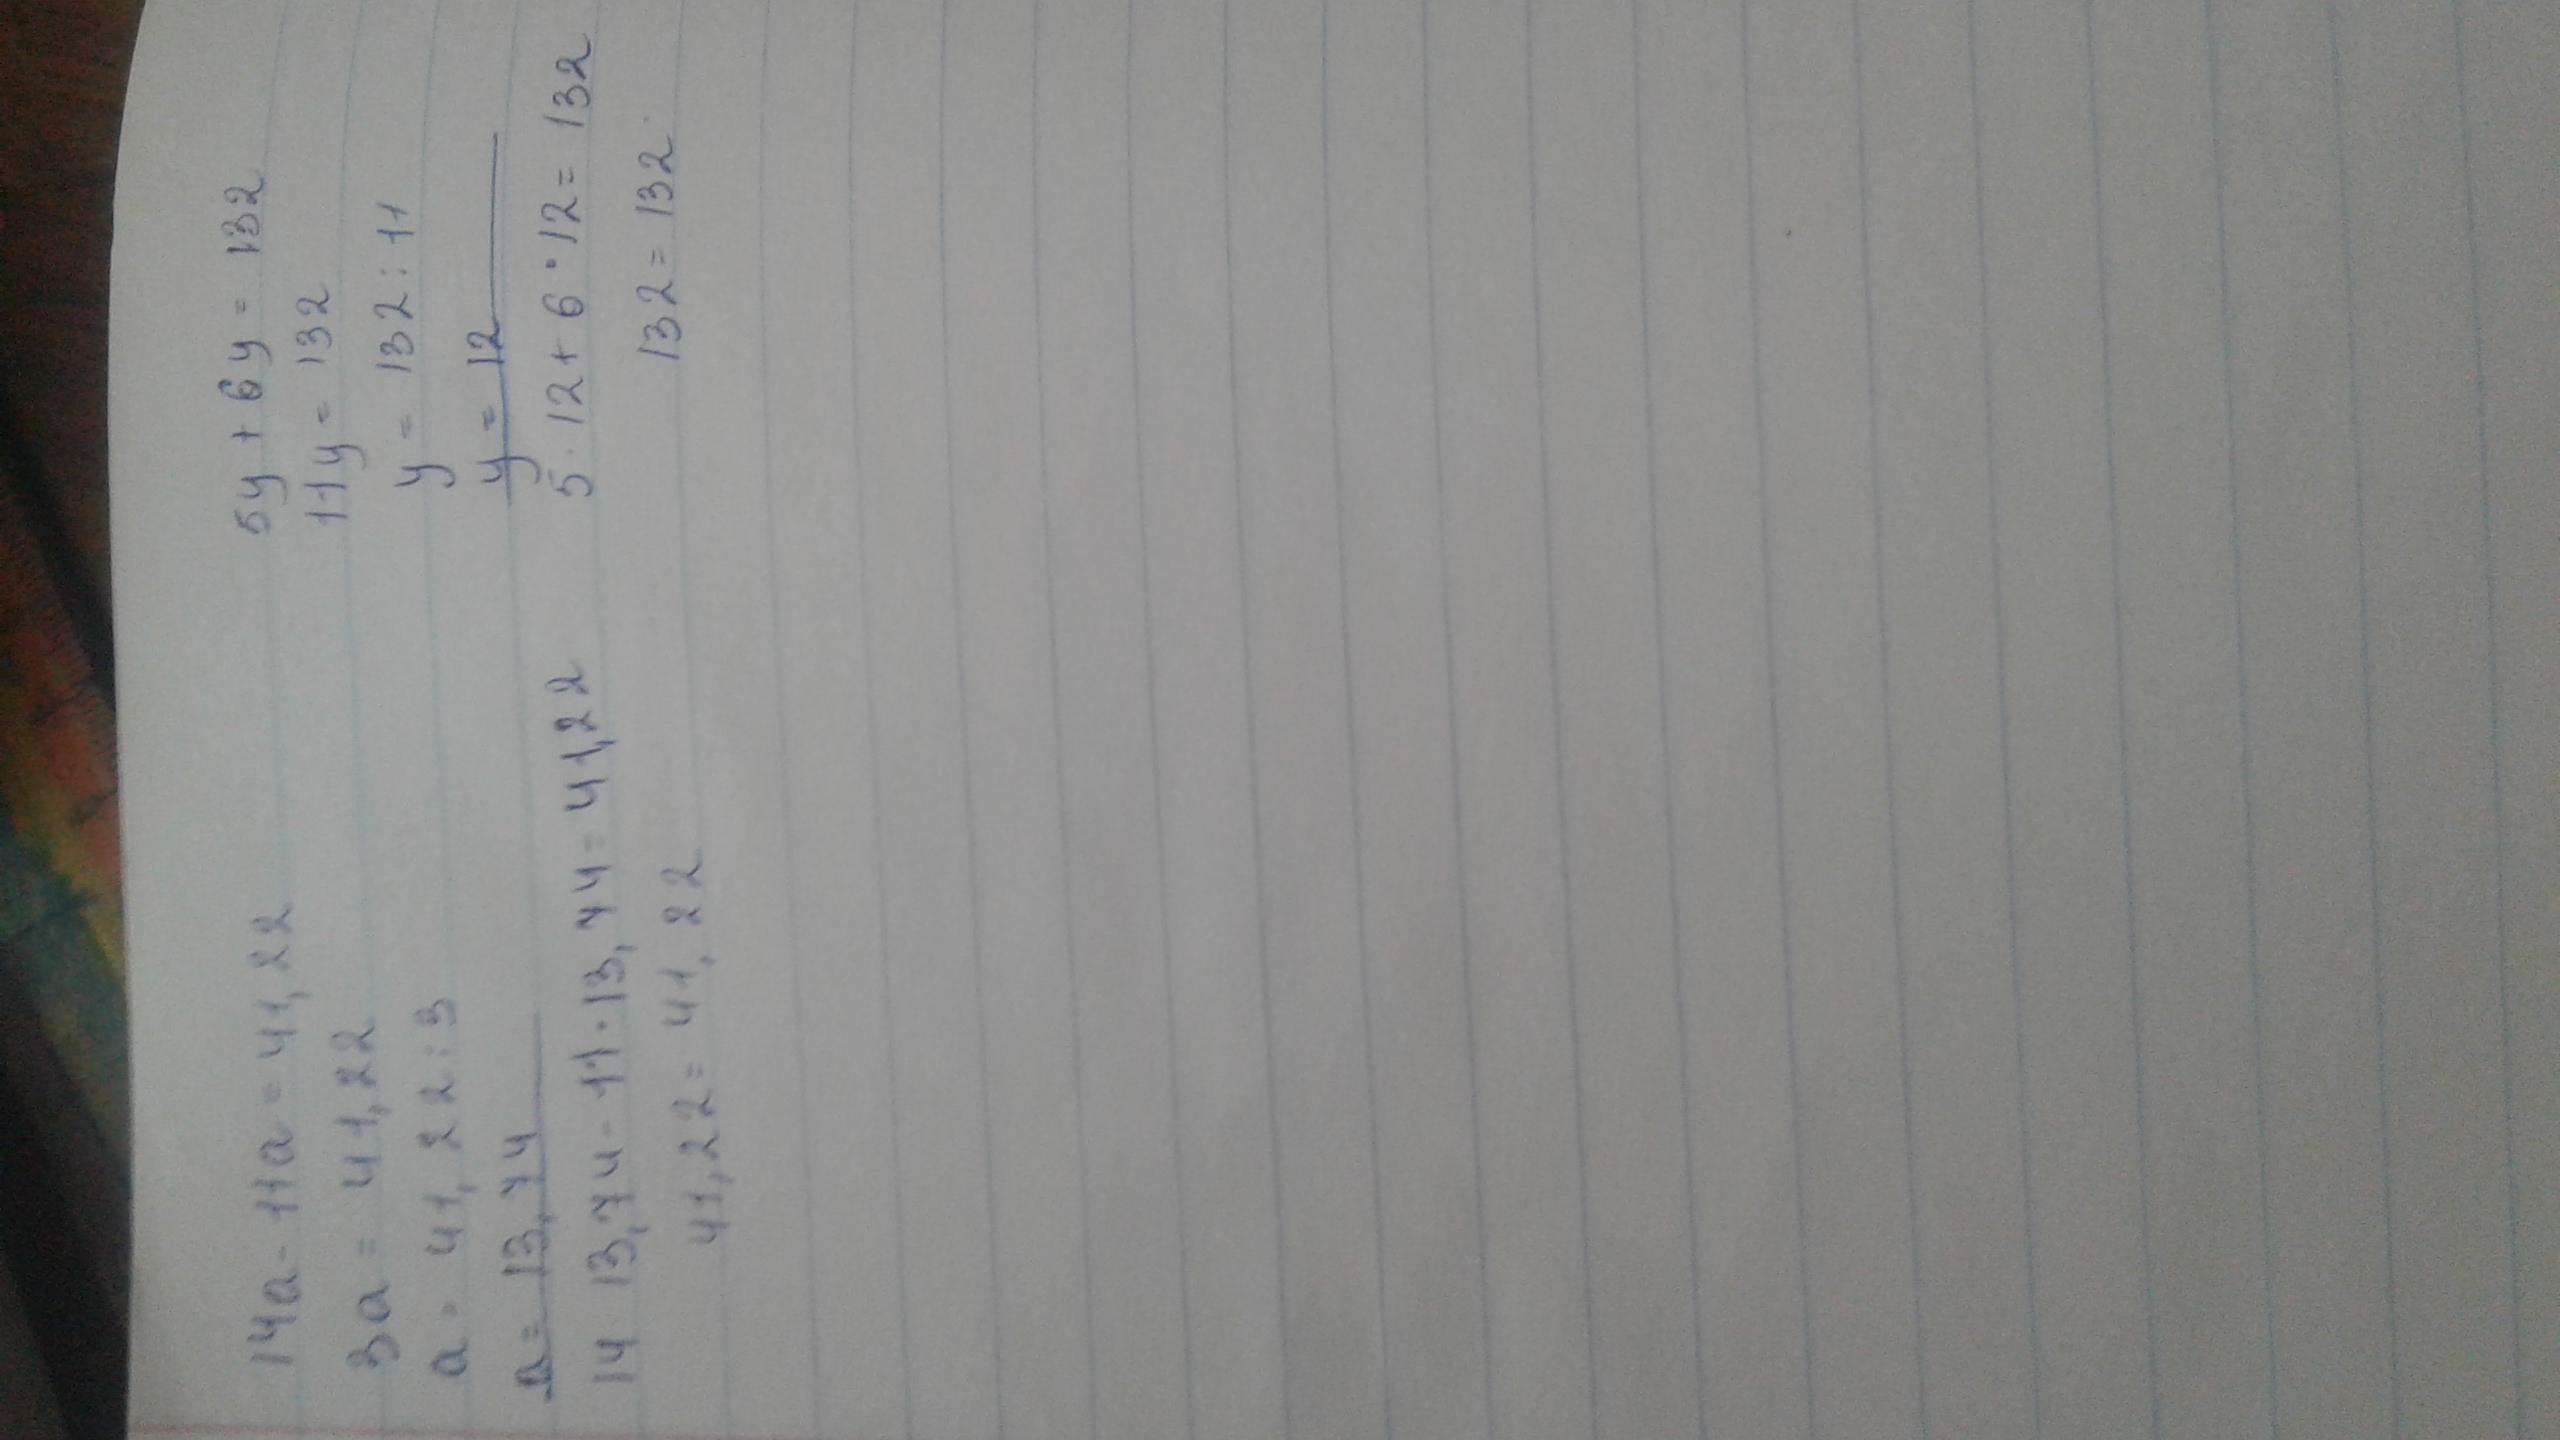 14a - 11a = 41,22
3a = 41,22
a = 41,22 : 3
a = 13,74
14 13,74 - 11 · 13,74 = 41,22
41,22 = 41,22
5y + 6y = 132
11y = 132
y = 132 : 11
y = 12
5 · 12 + 6 · 12 = 132
132 = 132